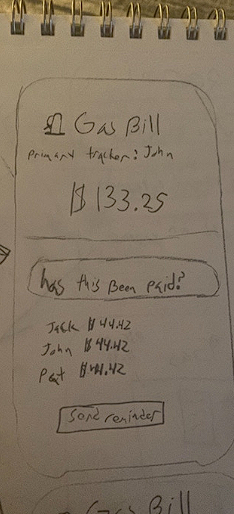 Gas Bill
Primary tracker: John
$133.25
has this Been paid?
Jack $44.42
John $44.42
Pat $44.42
Send reminder
Gas Bill